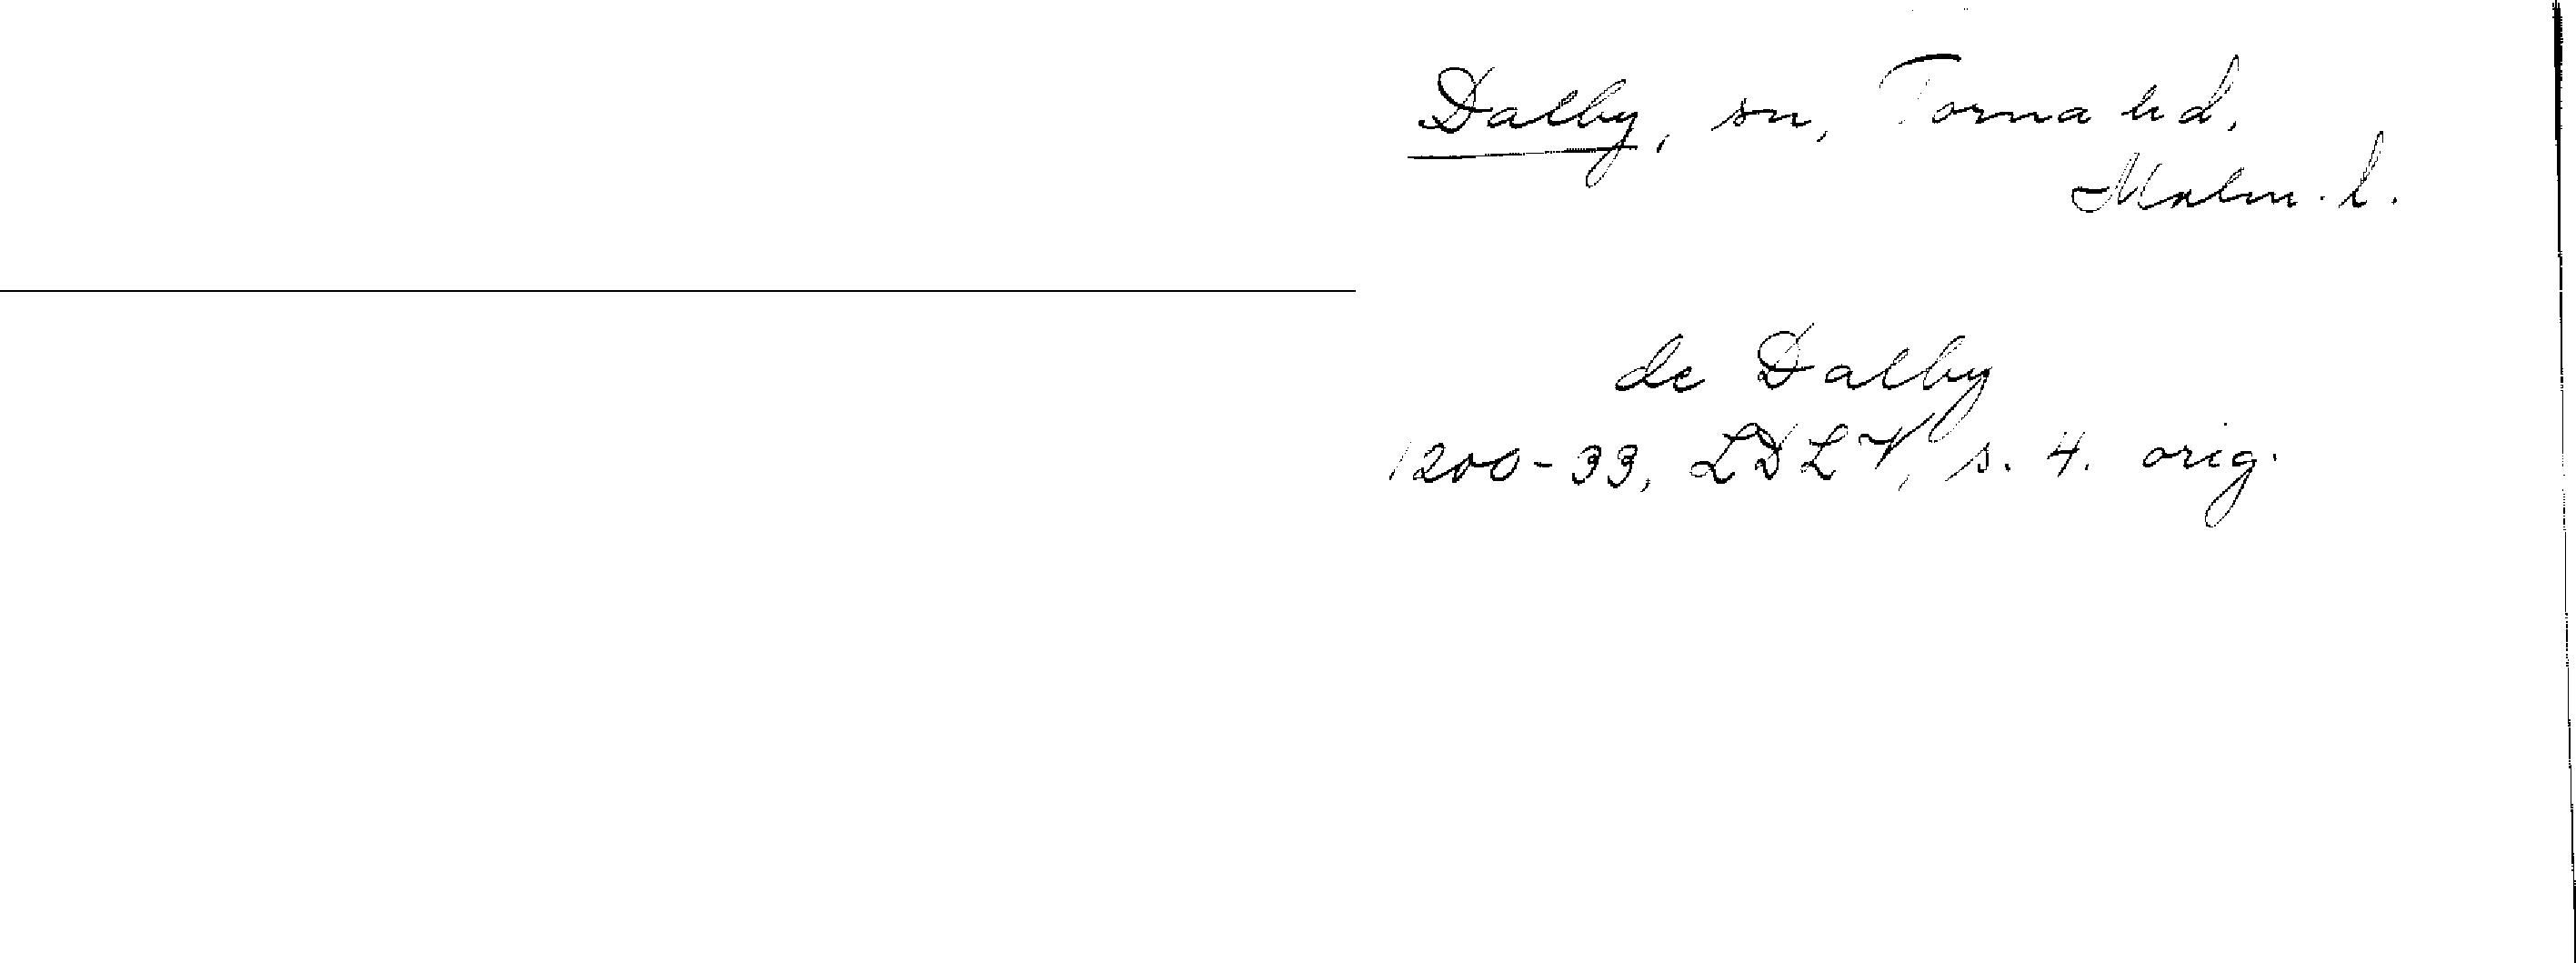 Dalby, sn, Torna hd,
Malm. l.
de Dalby
1200-33, LDLV, s. 4. orig.